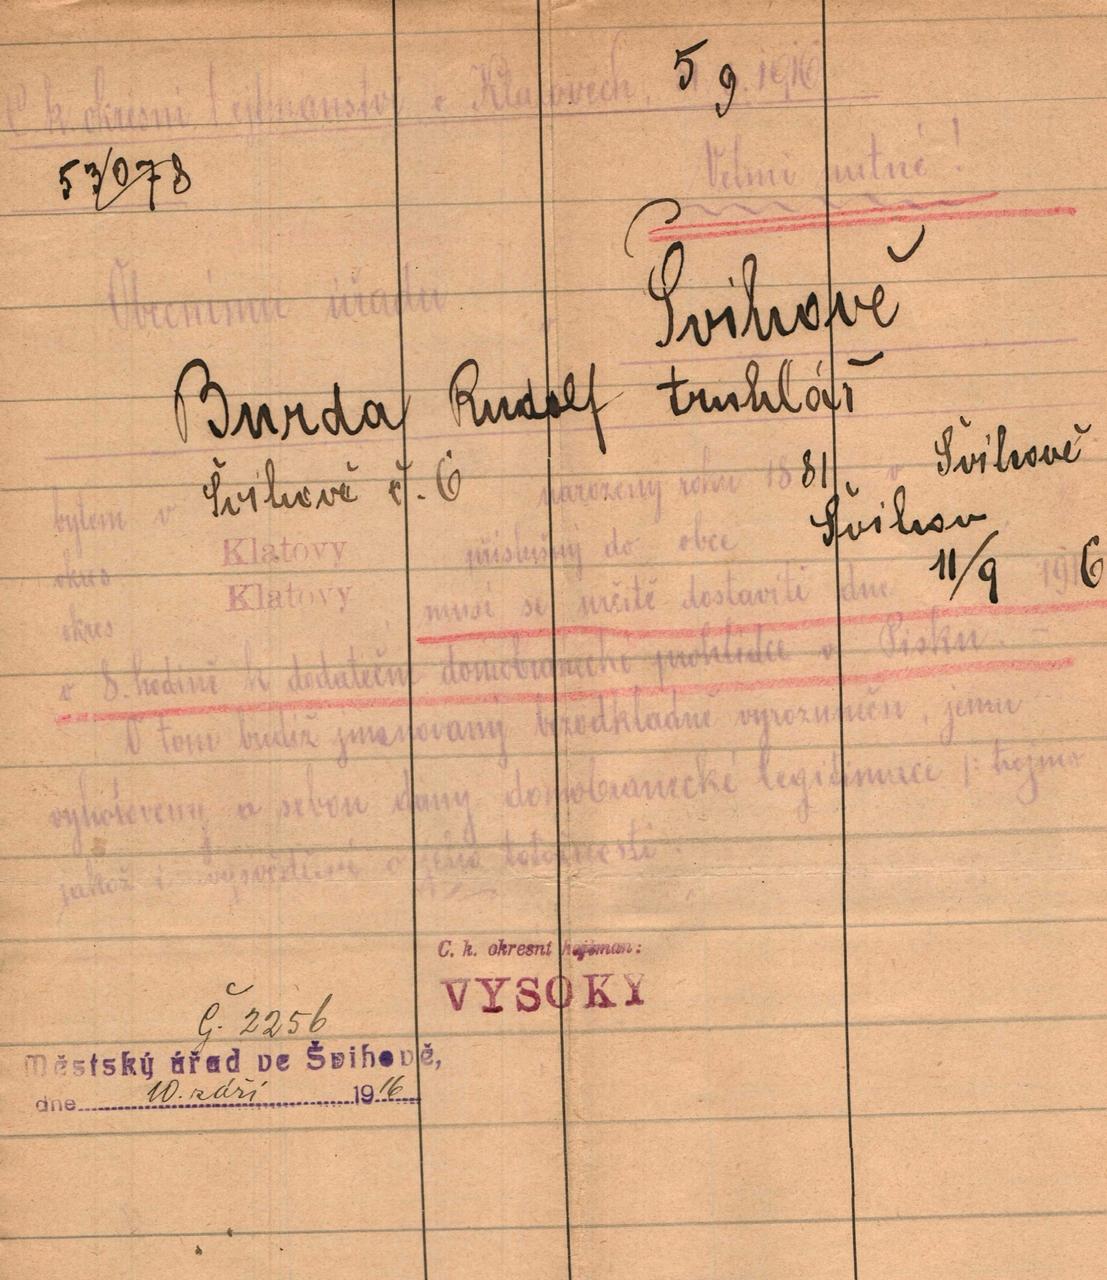 C. k. okresní hejtmanství v Klatovech, 5 9. 1916
53078
Velmi nutné!
Obecnímu úřadu
v Švihově
Burda Rudolf truhlář
bytem v Švihově č. 6 narozený roku 1881 v Švihově
okres Klatovy příslušný do obce Švihov
okres Klatovy musí se určitě dostaviti dne 11/9 1916
v 8. hodině k dodatečné domobranecké prohlídce v Písku. –
O tom budiž jmenovaný bezodkladně vyrozuměn, jemu
vyhotoveny a sebou dány domobranecké legitimace /: trojmo
jakož i vysvědčení o jeho totožnosti.
C. k. okresní hejtman:
VYSOKY
Č. 2256
Městský úřad ve Švihově,
dne 10. září 1916